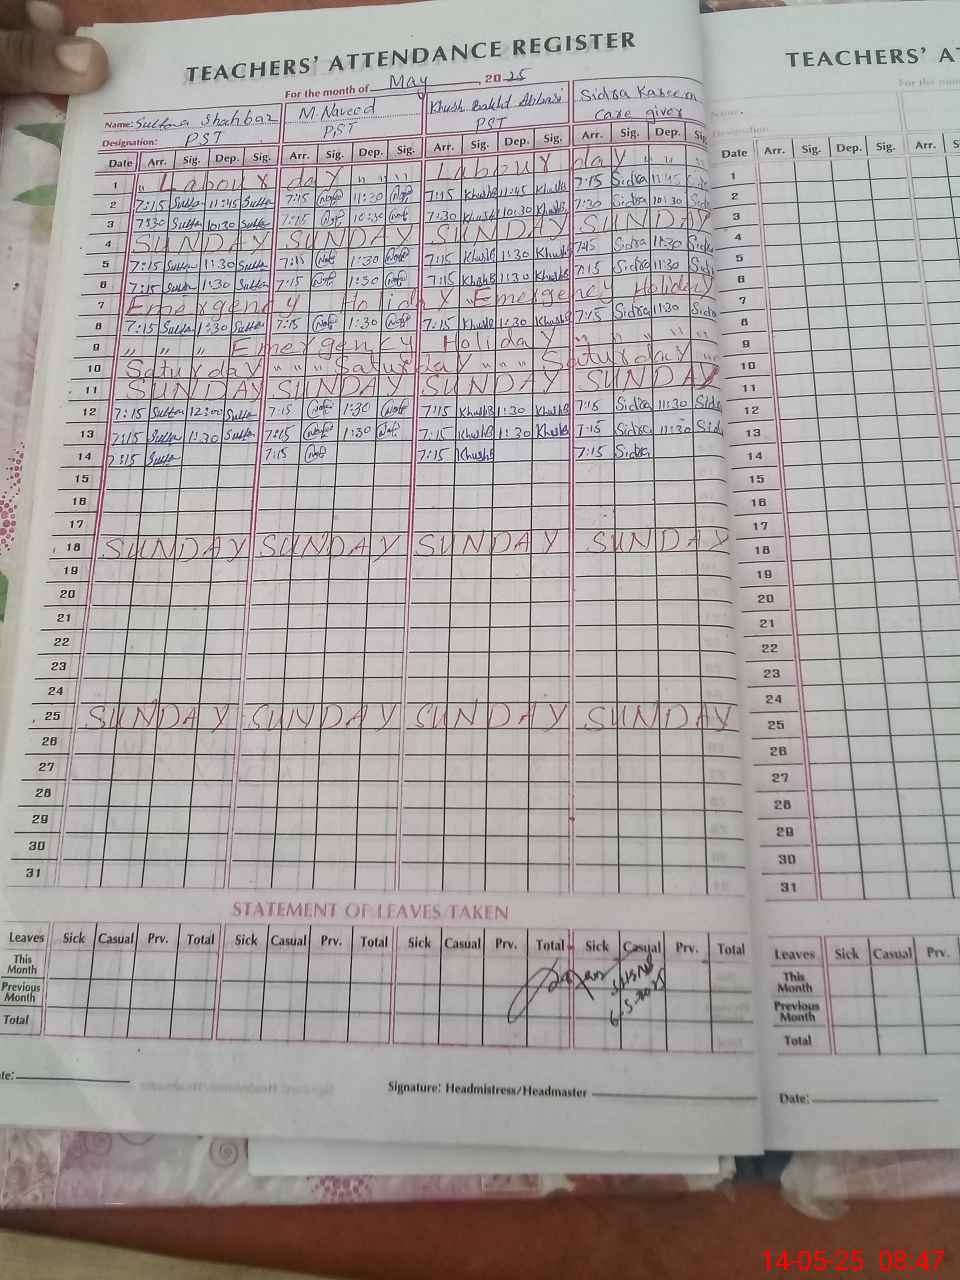 TEACHERS' ATTENDANCE REGISTER
For the month of May 2025
Name: Sultana Shahbaz M. Naveed Khush Bakht Abbasi Sidra Kareem
Designation: PST PST PST Care giver
Date Arr. Sig. Dep. Sig. Arr. Sig. Dep. Sig. Arr. Sig. Dep. Sig. Arr. Sig. Dep. Sig.
1 " Labour day " " " Labour day " " "
2 7:15 11:45 7:15 11:30 7:15 KhushB 11:45 KhushB 7:15 Sidra 11:45
3 7:30 10:30 7:15 10:30 7:30 KhushB 10:30 KhushB 7:30 Sidra 10:30
4 SUNDAY SUNDAY SUNDAY SUNDAY
5 7:15 1:30 7:15 1:30 7:15 KhushB 1:30 KhushB Sidra 11:30 Sidra
6 7:15 1:30 7:15 1:30 7:15 KhushB 1:30 KhushB 7:15 Sidra 11:30
7 Emergency Holiday " Emergency Holiday
8 7:15 1:30 7:15 1:30 7:15 KhushB 1:30 KhushB 7:15 Sidra 11:30 Sidra
9 " " " Emergency Holiday " " " "
10 Saturday " " " Saturday " " " Saturday " "
11 SUNDAY SUNDAY SUNDAY SUNDAY
12 7:15 12:00 7:15 1:30 7:15 KhushB 1:30 KhushB 7:15 Sidra 11:30
13 7:15 1:30 7:15 1:30 7:15 KhushB 1:30 KhushB 7:15 Sidra 11:30
14 7:15 7:15 7:15 KhushB 7:15 Sidra
15
16
17
18 SUNDAY SUNDAY SUNDAY SUNDAY
19
20
21
22
23
24
25 SUNDAY SUNDAY SUNDAY SUNDAY
26
27
28
29
30
31
STATEMENT OF LEAVES TAKEN
Leaves Sick Casual Prv. Total Sick Casual Prv. Total Sick Casual Prv. Total Sick Casual Prv. Total
This Month
Previous Month
Total
6-5-2025
Signature: Headmistress/Headmaster
TEACHERS' AT
Date Arr. Sig. Dep. Sig. Arr.
1
2
3
4
5
6
7
8
9
10
11
12
13
14
15
16
17
18
19
20
21
22
23
24
25
26
27
28
29
30
31
Leaves Sick Casual Prv.
This Month
Previous Month
Total
Date:
14-05-25 08:47